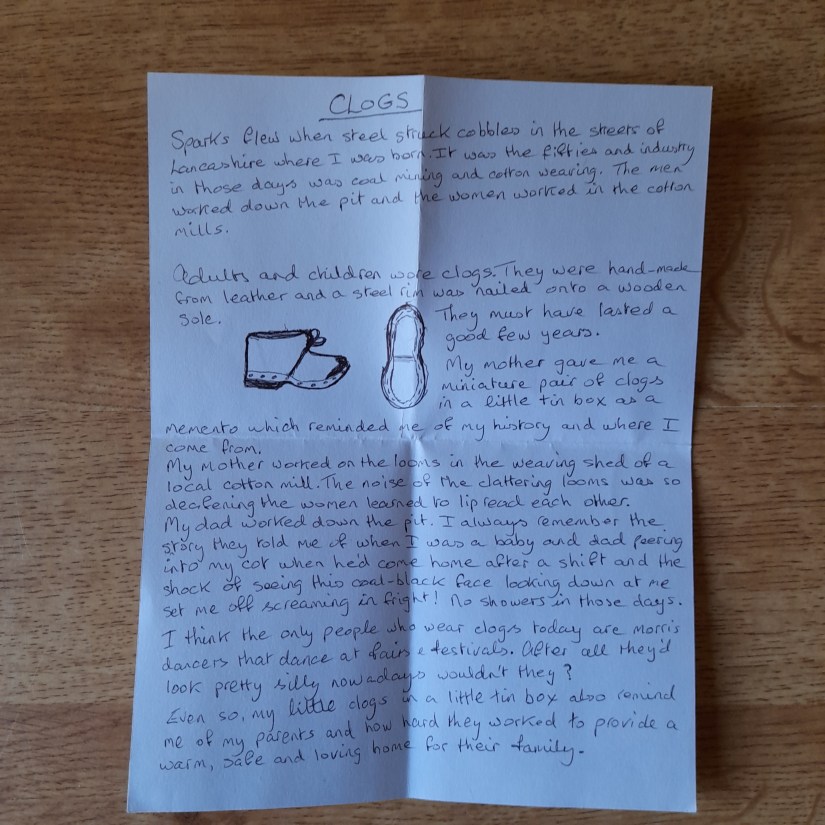 CLOGS
Sparks flew when steel struck cobbles in the streets of
Lancashire where I was born. It was the fifties and industry
in those days was coal mining and cotton weaving. The men
worked down the pit and the women worked in the cotton
mills.
Adults and children wore clogs. They were hand-made
from leather and a steel rim was nailed onto a wooden
sole.
They must have lasted a
good few years.
My mother gave me a
miniature pair of clogs
in a little tin box as a
memento which reminded me of my history and where I
come from.
My mother worked on the looms in the weaving shed of a
local cotton mill. The noise of the clattering looms was so
deafening the women learned to lip read each other.
My dad worked down the pit. I always remember the
story they told me of when I was a baby and dad peering
into my cot when he'd come home after a shift and the
shock of seeing this coal-black face looking down at me
set me off screaming in fright! No showers in those days.
I think the only people who wear clogs today are Morris
dancers that dance at fairs & festivals. After all they'd
look pretty silly nowadays wouldn't they?
Even so, my little clogs in a little tin box also remind
me of my parents and how hard they worked to provide a
warm, safe and loving home for their family.